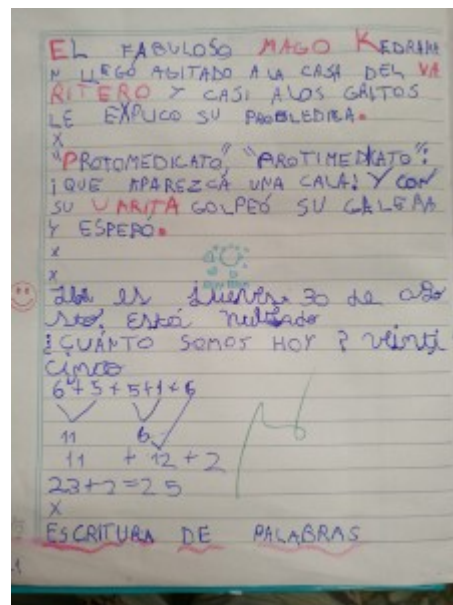 EL FABULOSO MAGO KEDRAMA
N LLEGÓ AGITADO A LA CASA DEL VA
RITERO Y CASI A LOS GRITOS
LE EXPLICO SU PROBLEDMA.
X
"PROTOMEDICATO" "PROTIMEDICATO":
¡QUE APAREZCA UNA CALA! Y CON
SU VARITA GOLPEÓ SU GALERA
Y ESPERÓ.
X
X
es jueves 30 de ago
sto, Está nublado
¿CUÁNTO SOMOS HOY? veinti
cinco
6+5+5+1+6
11 6
11 + 12 + 2
23+2=25
X
ESCRITURA DE PALABRAS